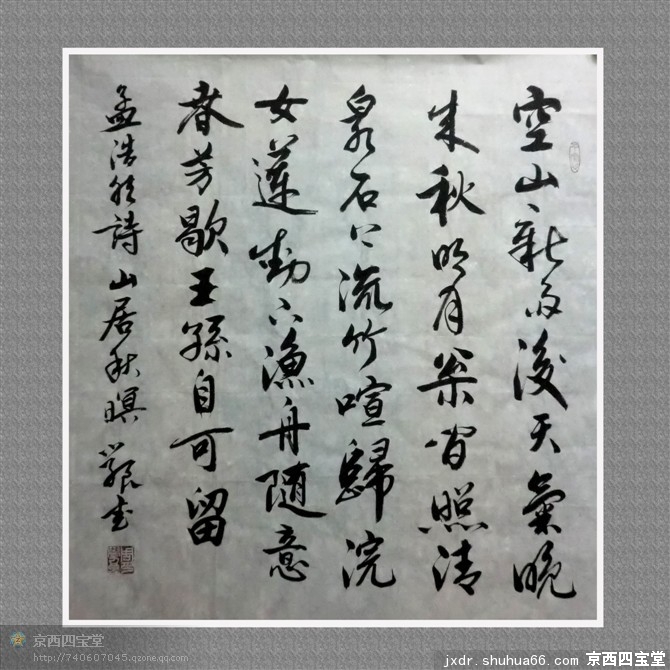 空山新雨後天氣晚
来秋明月松間照清
泉石上流竹喧歸浣
女蓮動下漁舟随意
春芳歇王孫自可留
孟浩然詩山居秋暝
京西四宝堂
http://740607045.qzone.qq.com
jxdr.shuhua66.com 京西四宝堂